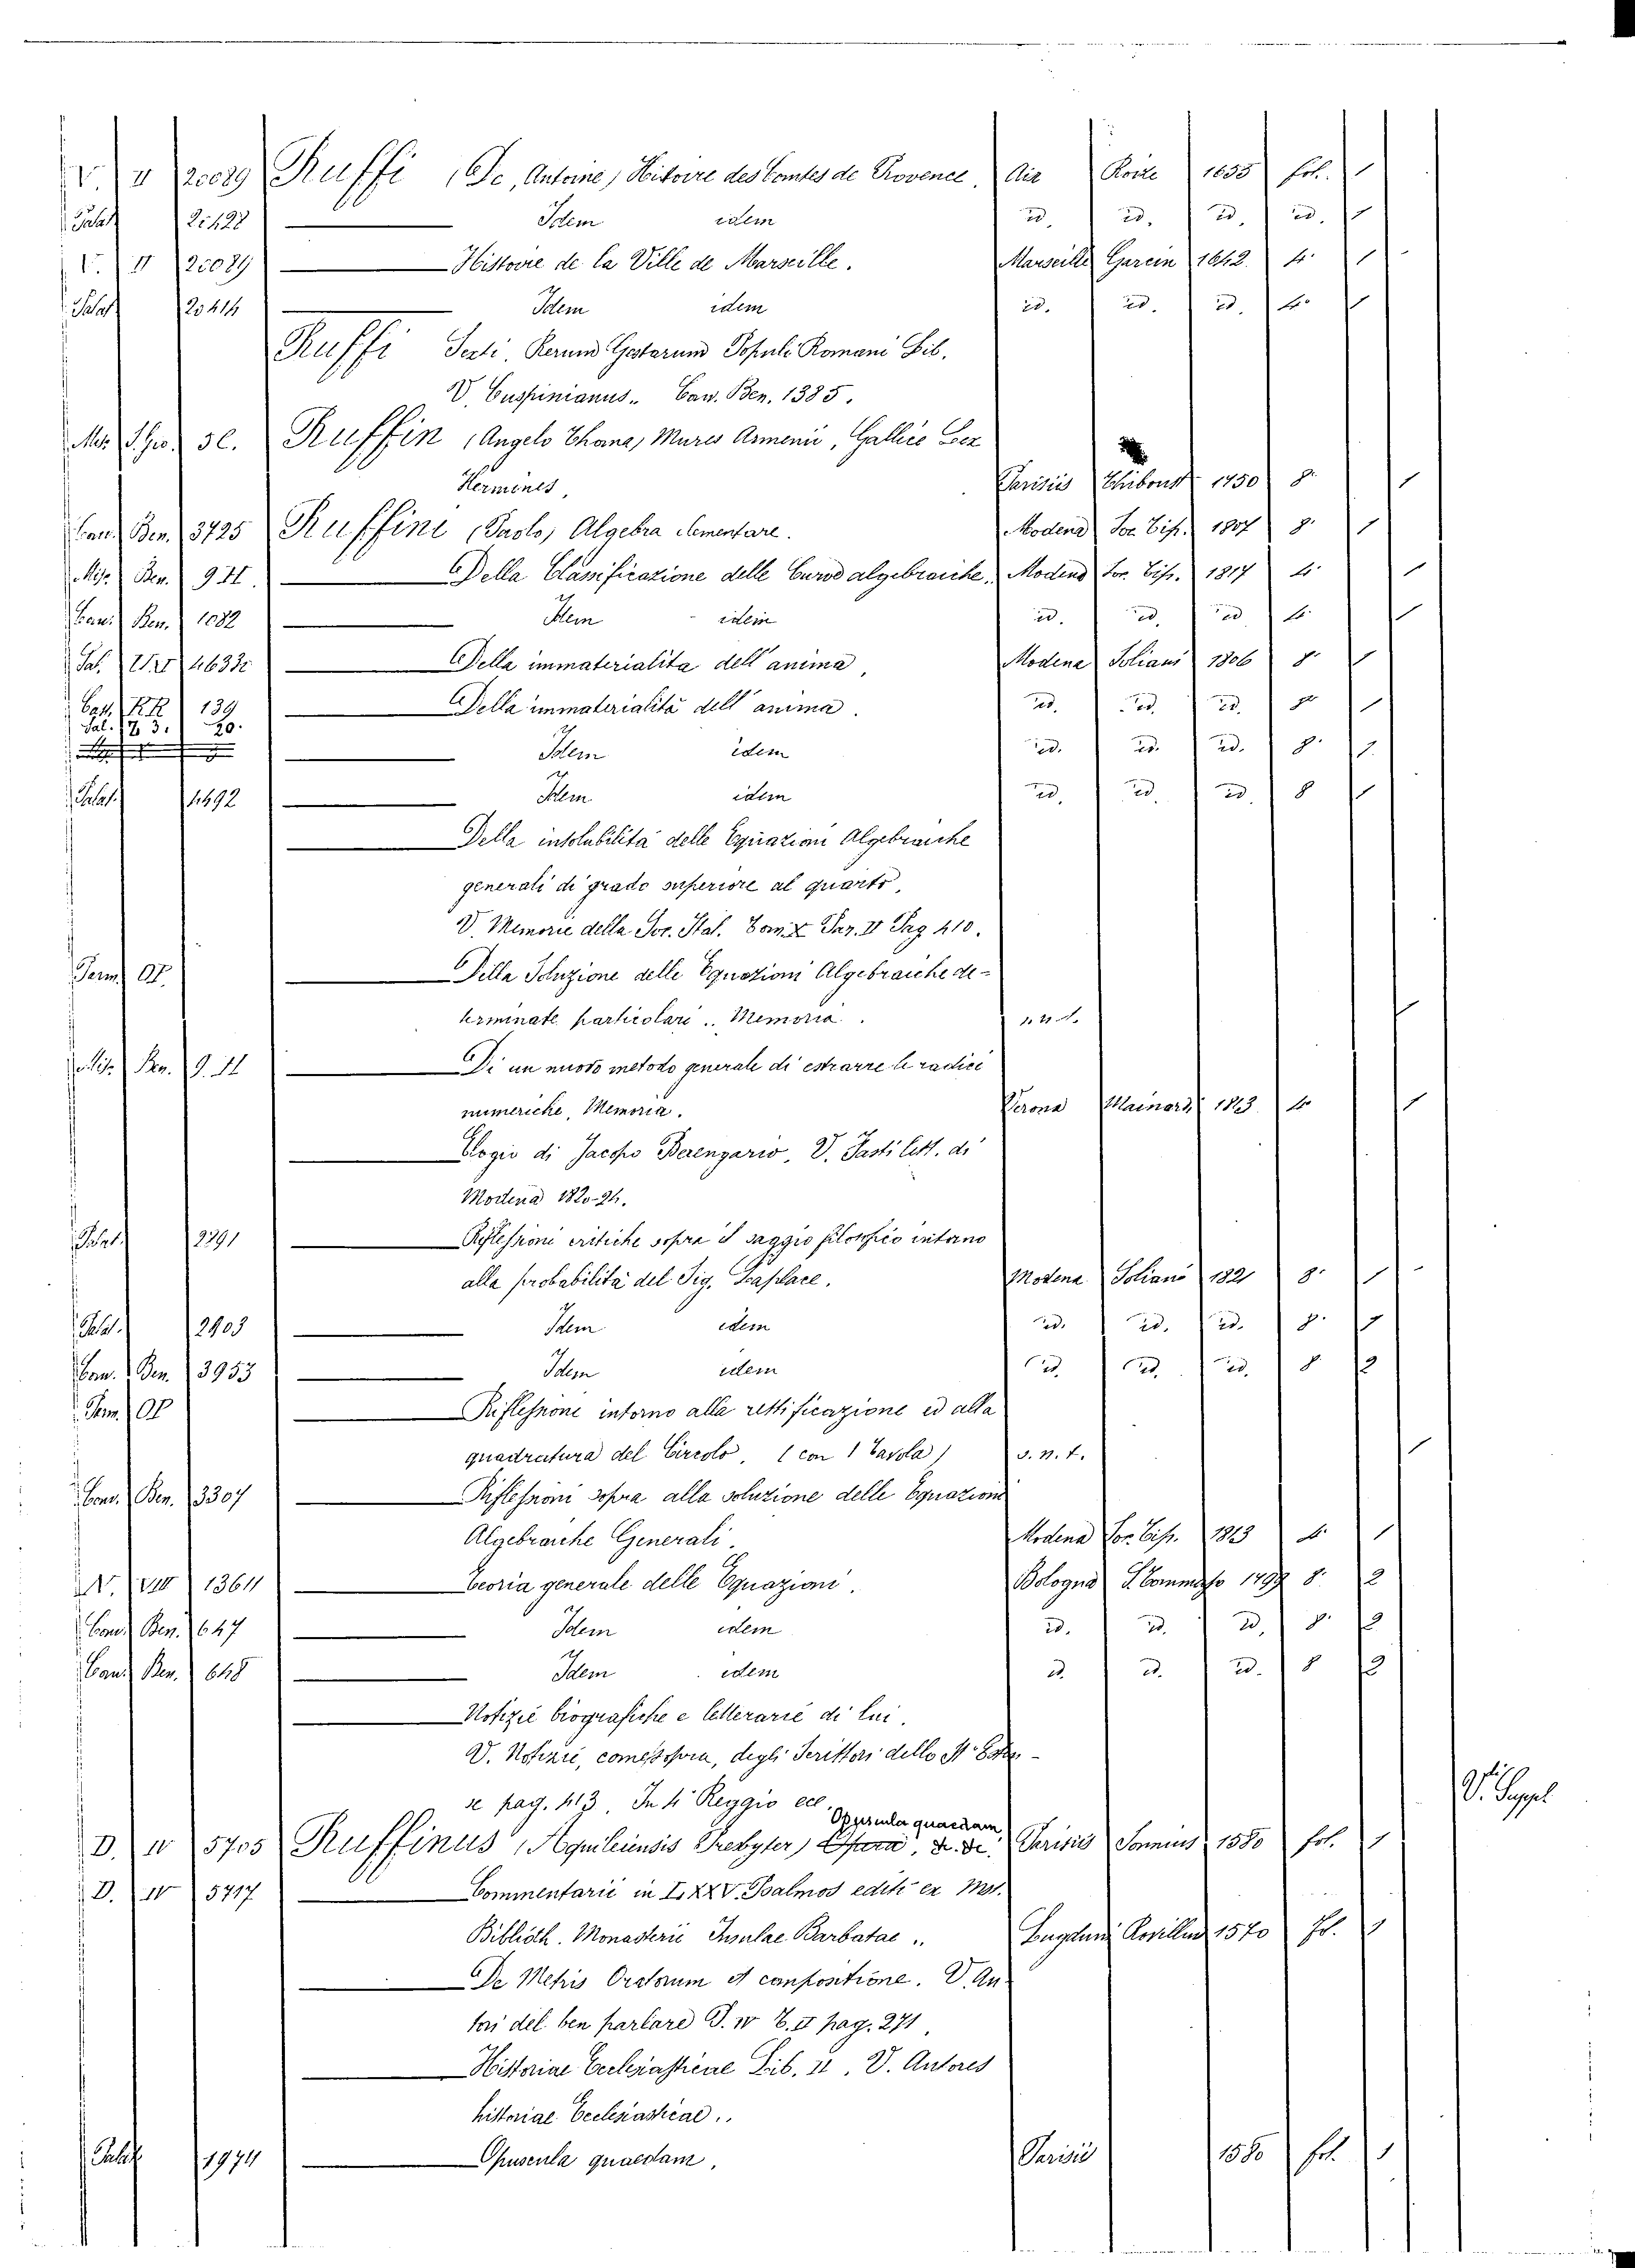 V. II 20089 Ruffi (De, Antoine) Histoire des Comtes de Provence. Aix Roize 1655 fol. 1
Palat. 25422 Idem idem id. id. id. id. 1
V. II 25089 Histoire de la Ville de Marseille. Marseille Garcin 1642. 4. 1
Palat. 20414 Idem idem id. id. id. 4. 1
Ruffi Sexti Rerum Gestarum Populi Romani Lib.
V. Cuspinianus. Can. Ben. 1385.
Ruffin (Angelo Thoma) Mures Armenii, Gallice Les
Hermines, Parisiis 1750 8. 1
Can. Ben. 3725 Ruffini (Paolo) Algebra elementare. Modena Soc. Tip. 1807 8. 1
Mis. Ben. 9. II. Della Classificazione delle Curve algebraiche, Modena Soc. Tip. 1817 4. 1
Can. Ben. 1082 Idem idem id. id. id. 4. 1
Pal. 4633c Della immaterialità dell'anima, Modena Soliani 1806 8. 1
Catt. RR 139 Della immaterialità dell'anima. id. id. id. 8. 1
Sal. 20. Idem idem id. id. id. 8. 1.
Palat. 4492 Idem idem id. id. id. 8 1
Della insolubilità delle Equazioni Algebraiche
generali di grado superiore al quarto,
V. Memorie della Soc. Ital. Tom. X Par. II Pag 410.
Della Soluzione delle Equazioni Algebraiche de-
terminate particolari. Memoria. s. n. t.
Mis. Ben. 9. II Di un nuovo metodo generale di estrarre le radici
numeriche, Memoria. Verona Mainardi 1813. 4. 1
Elogio di Jacopo Berengario, V. Fasti lett. di
Modena 1820-24.
Palat. 2291 Riflessioni critiche sopra il saggio filosofico intorno
alla probabilità del Sig. Laplace. Modena Soliani 1821 8. 1
Palat. 2903 Idem idem id. id. id. 8. 1
Can. Ben. 3953 Idem idem id. id. id. 8.
Riflessione intorno alla rettificazione ed alla
quadratura del Circolo, (con 1 Tavola) s. n. t. 1
Can. Ben. 3307 Riflessioni sopra alla soluzione delle Equazioni
Algebraiche Generali. Modena Soc. Tip. 1813 4. 1
N. VIII 13611 Teoria generale delle Equazioni. Bologna S. Tommaso 1799 8. 2
Can. Ben. 647 Idem idem id. id. id. 8. 2
Can. Ben. 648 Idem idem id. id. id. 8 2
Notizie biografiche e letterarie di lui.
V. Notizie, come sopra, degli Scrittori dello St. Esten-
se pag. 413. In 4. Reggio ecc. V. Suppl
Opuscula quaedam
D. IV 5705 Ruffinus (Aquileiensis Presbyter) Opera, Parisiis Sonnius 1580 fol. 1
D. IV 5717 Commentarii in LXXV. Psalmos editi ex Mst.
Biblioth. Monasterii Insulae Barbatae. Lugduni Rovillius 1570 fol. 1
De Metris Oratorum et conpositione. V. Au-
tori del ben parlare P. IV T. II pag. 271,
Historiae Ecclesiasticae Lib. II. V. Autores
historiae Ecclesiasticae.
Palat. 1974 Opuscula quaedam, Parisiis 1580 fol. 1